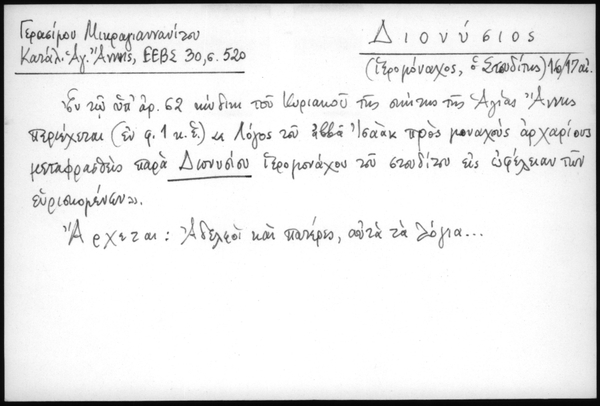 Γερασίμου Μικραγιαννανίτου
Κατάλ. Ἁγ. Ἄννης, ΕΕΒΣ 30, σ. 520
Διονύσιος
(ἱερομόναχος, ὁ Στουδίτης) 16/17 αἰ.
Ἐν τῷ ὑπ' ἀρ. 62 κώδικι τοῦ Κυριακοῦ τῆς σκήτης τῆς Ἁγίας Ἄννης
περιέχεται (ἐν φ. 1 κ.ἑ.) Λόγος τοῦ ἀββᾶ Ἰσαὰκ πρὸς μοναχοὺς ἀρχαρίους
μεταφρασθεὶς παρὰ Διονυσίου ἱερομονάχου τοῦ στουδίτου εἰς ὠφέλειαν τῶν
εὑρισκομένων.
Ἄρχεται: Ἀδελφοὶ καὶ πατέρες, αὐτὰ τὰ λόγια...